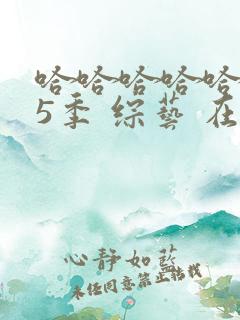 哈哈哈哈哈
5季 综艺 在
心静如蓝
未经同意禁止转载